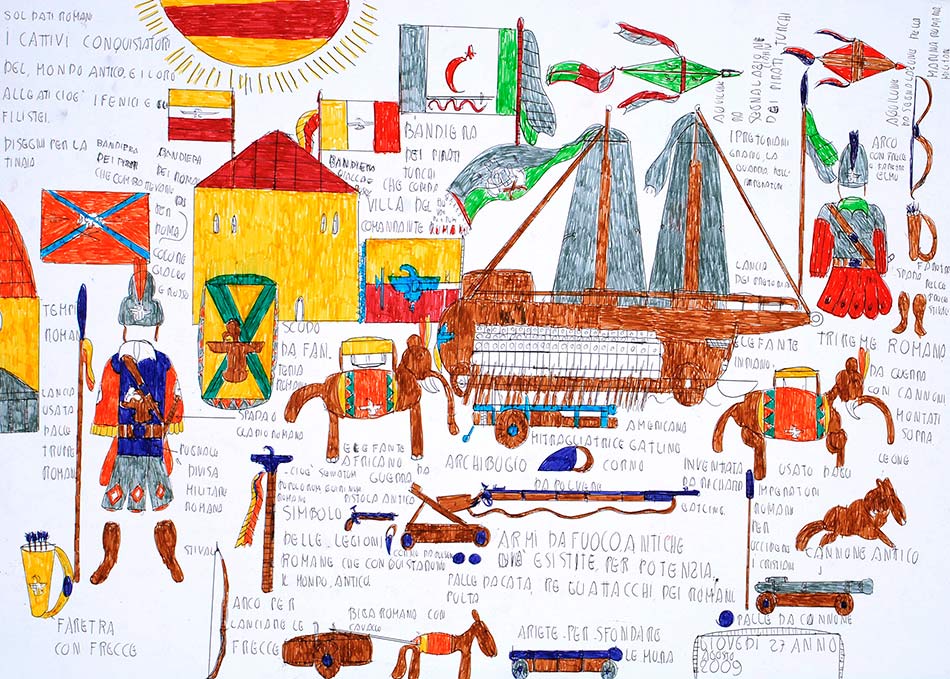 SOLDATI ROMANI
I CATTIVI CONQUISTATORI
DEL MONDO ANTICO, E I LORO
ALLEATI CIOE' I FENICI E
FILISTEI.
DISEGNI PER LA
TINAIA
BANDIERA
CHE COMBATTEVANO
PER
ROMA
COLORE
GIALLO
E ROSSO
BANDIERA
DEI ROMANI
BANDIERA
GIALLO E
BANDIERA
DEI PIRATI
TURCHI
CHE COMBA
VILLA DEL
COMANDANTE ROMANO
SEGNALAZIONE
DEI PIRATI TURCHI
I PRETORIANI
GUARDIA
IMPERATORE
AQUILONE
DO SEGNALAZIONE DELLA
MARINA ROMANA
ARCO
CON FRECCE
ELMO
LANCIA
DEI PRETORIANI
SPADA
STIVALI
TEMPIO
ROMANO
SCUDO
DA FAN.
TERIA
ROMANA
ELEFANTE
INDIANO
TRIREME ROMANO
DA GUERRA
CON CANNONI
MONTATI
SOPRA
LANCIA
USATA
DALLE
TRUPPE
ROMANE
SPADA O
GLADIO ROMANO
PUGNALE
DIVISA
MILITARE
ROMANA
ELEFANTE
AFRICANO DA
GUERRA
AMERICANO
MITRAGLIATRICE GATLING
INVENTATA
DA RICHARD
GATLING
USATO DAGLI
IMPERATORI
ROMANI
PER
UCCIDERE
I CRISTIANI
LEONE
ARCHIBUGIO
CORNO
DA POLVERE
CIOE' SENATUM
ROMANO
PISTOLA ANTICA
SIMBOLO
DELLE LEGIONI
ROMANE CHE CONQUISTARONO
IL MONDO ANTICO.
ARMI DA FUOCO ANTICHE
ESISTITE PER POTENZIA
RE GLI ATTACCHI DEI ROMANI
PALLE DA CATA
PULTA
CANNONE ANTICO
STIVALI
ARCO PER
LANCIARE LE
FRECCE
BIGA ROMANO CON
CAVALLO
FARETRA
CON FRECCE
ARIETE PER SFONDARE
LE MURA
PALLE DA CANNONE
GIOVEDI 27 ANNO
AGOSTO
2009